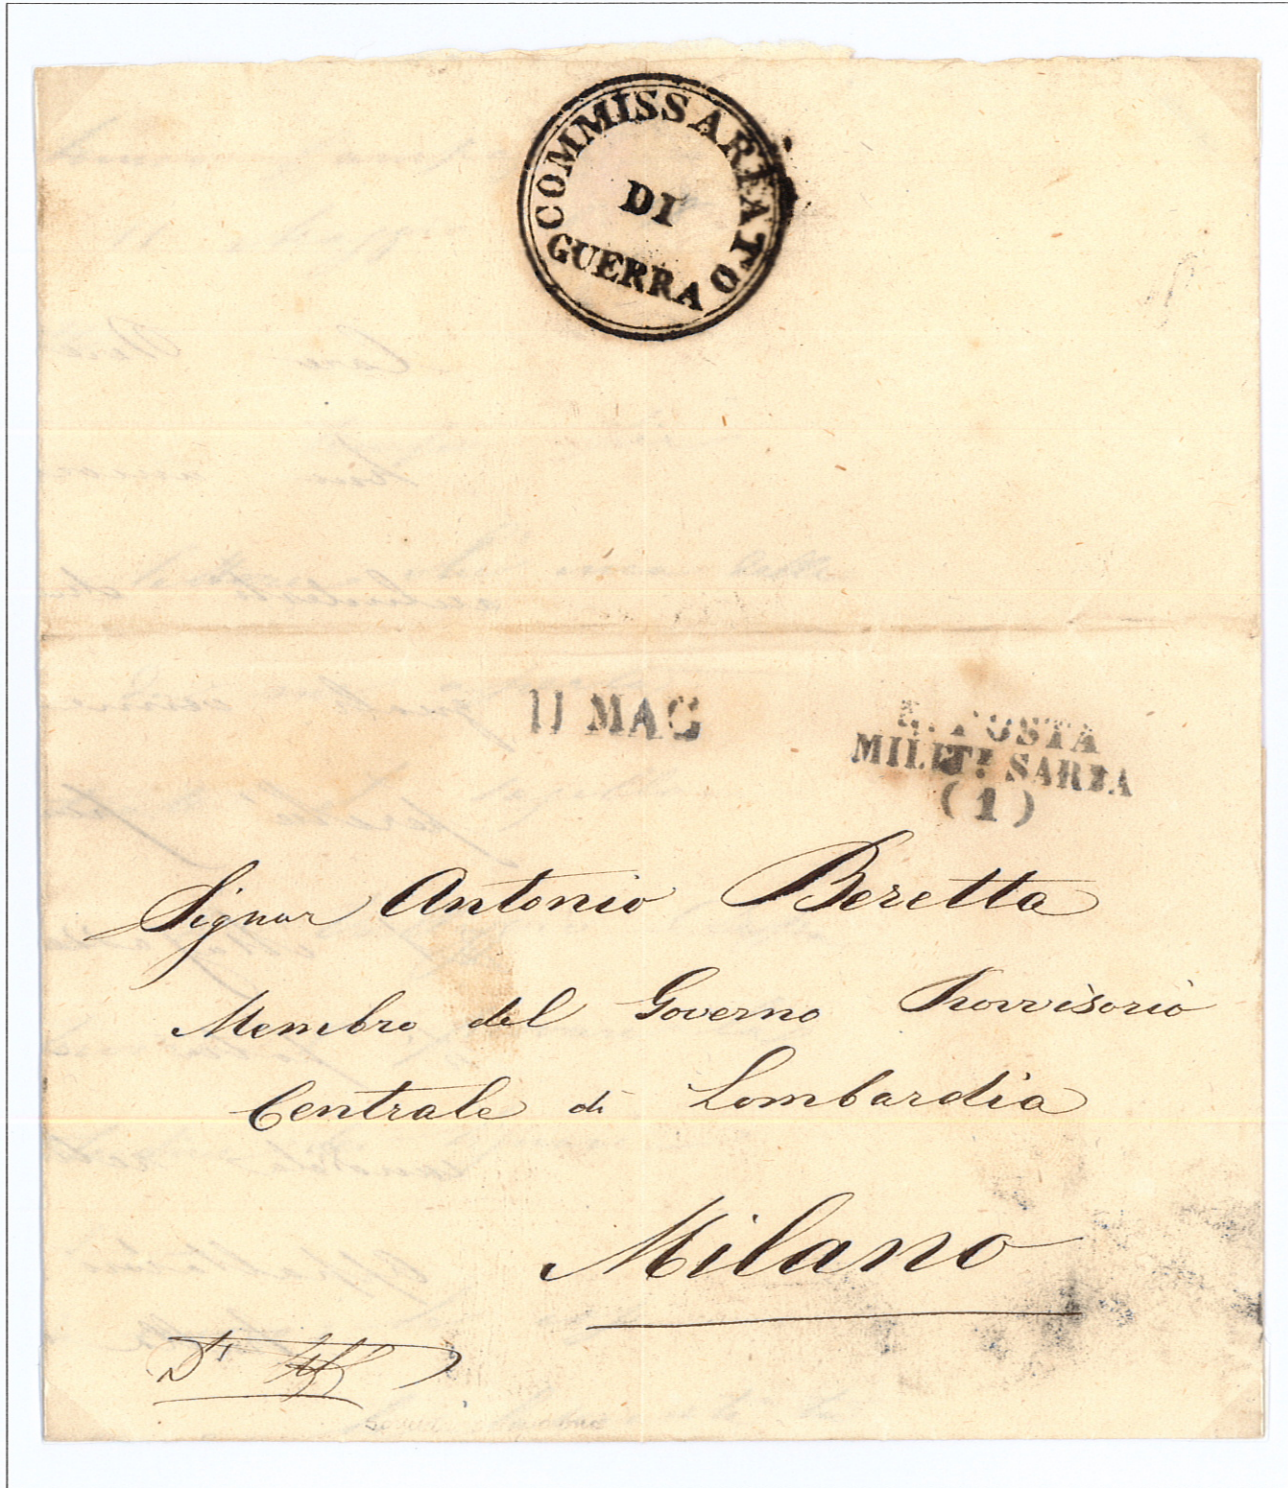 COMMISSARIATO
DI
GUERRA
11 MAG
R. POSTA
MILIT.E SARDA
(1)
Signor Antonio Beretta
Membro del Governo Provvisorio
Centrale di Lombardia
Milano